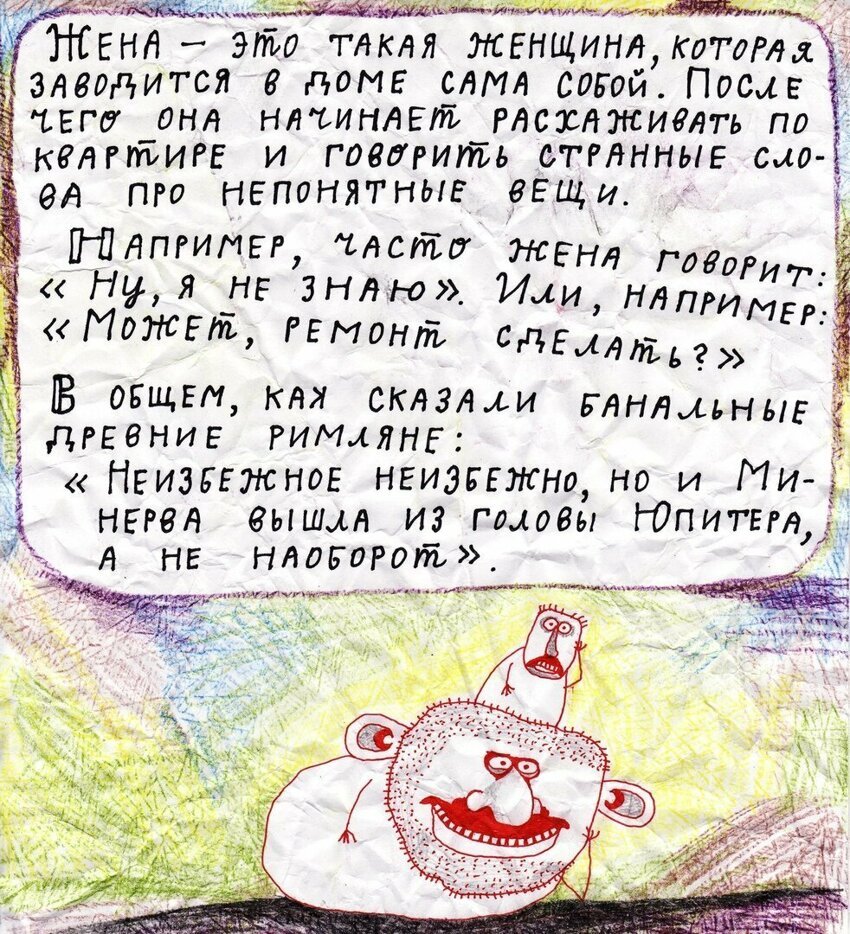 Жена – это такая женщина, которая
заводится в доме сама собой. После
чего она начинает расхаживать по
квартире и говорить странные сло-
ва про непонятные вещи.
Например, часто жена говорит:
«Ну, я не знаю». Или, например:
«Может, ремонт сделать?»
В общем, как сказали банальные
древние римляне:
«Неизбежное неизбежно, но и Ми-
нерва вышла из головы Юпитера,
а не наоборот».